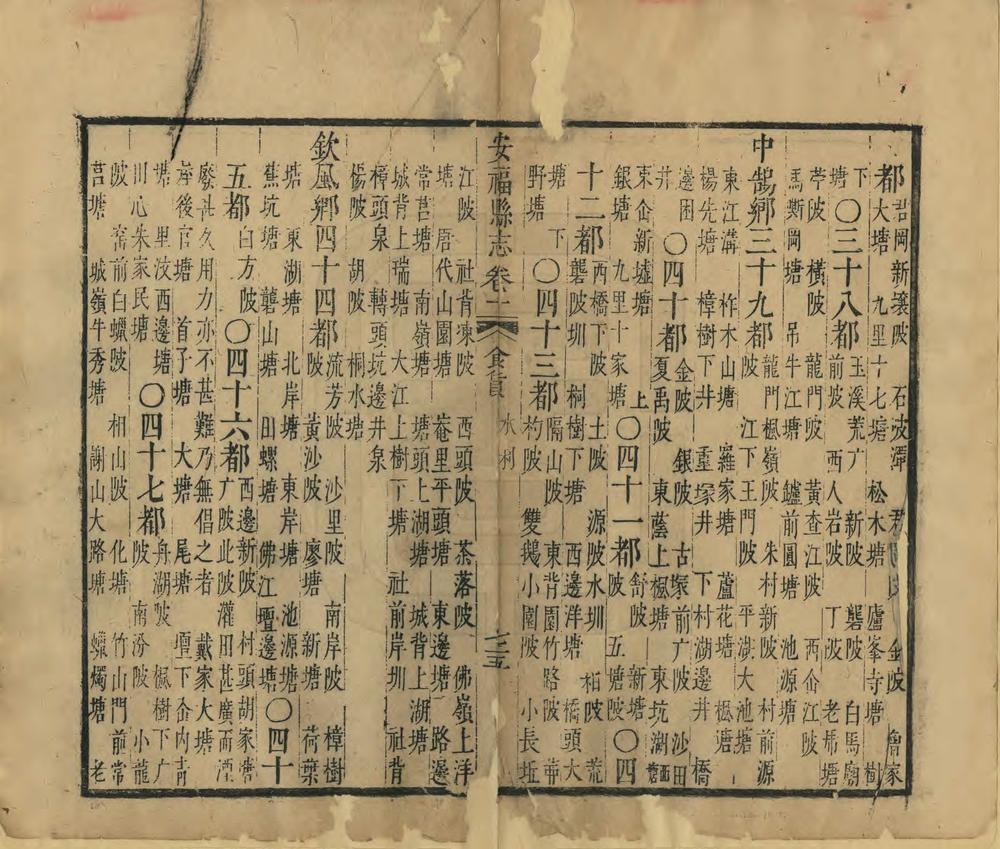 都 君岡新壕陂 石陂潭 金陂 魯家
大塘 九里十七塘 松木塘 廬峯寺塘 樹
下塘〇三十八都 玉溪荒广 新陂 礱陂 白馬廟
前陂 西人岩陂 丁陂 老帮塘
苧陂 橫陂 龍門陂 黃查江陂 西仚江陂
馬厮岡塘 吊牛江塘 鑪前圓塘 池源塘
中鵠鄉三十九都 龍門楓嶺陂 朱村新陂 村前源
陂 江下王門陂 平湖大池塘
東江溝 柞木山塘 羅家塘 蘆花塘 楓塘
楊先塘 樟樹下井 重塚井 下村湖邊井 橋
邊困井〇四十都 金陂 銀陂 古塚前广陂 沙田
夏禹陂 東蔭上楓塘 東坑湖
東仚新墟塘 上〇四十一都 舒陂 新塘〇四
銀塘 九里十家塘 陂 五塘陂
十二都 西橋下陂 土陂 源陂水圳 柏陂 荒
礱陂圳 桐樹下塘 西邊洋塘 橋頭大
塘 下〇四十三都 隔山陂 東背園竹路陂 華
野塘 杓陂 雙鵝小圍陂 小長坵
安福縣志 卷二 食貨 水利 三五
江陂 社背凍陂 西頭陂 茶落陂 佛嶺上洋
塘 唐代山園塘 菴里平頭塘 東邊塘 路邊
常莒塘 南嶺塘 塘頭上湖塘 城背上湖塘
城背上瑞塘 大江上樹下塘 社前岸圳 社背
樟頭泉 轉頭坑邊井泉
楊陂 胡陂 桐水塘
欽風鄉四十四都 流芳陂 沙里陂 南岸陂 樟樹
陂 黃沙陂 廖塘 新塘 荷葉
塘 東湖塘 北岸塘 東岸塘 池源塘〇四十
蕉坑塘 礱山塘 田螺塘 佛江壇邊塘
五都 白方陂〇四十六都 西邊新陂 村頭胡家塘
广陂此陂灌田甚廣而湮
廢甚久用力亦不甚難乃無倡之者 戴家大塘
岸後官塘 首予塘 大塘 尾塘 壇下仚內青
塘 里汶西邊塘〇四十七都 舟湖陂 楓樹下广
川心朱家民塘 陂 南汾陂 小龍
陂 窑前白蠟陂 相山陂 化塘 竹山門前常
莒塘 城嶺牛秀塘 謝山大路塘 蠟燭塘 老